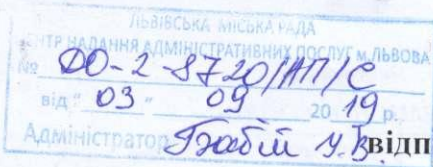 ЛЬВІВСЬКА МІСЬКА РАДА
ЦЕНТР НАДАННЯ АДМІНІСТРАТИВНИХ ПОСЛУГ м. ЛЬВОВА
№ ДО-2-8720/АП/С
від "03" 09 2019 р.
Адміністратор Бабій У.В. відп